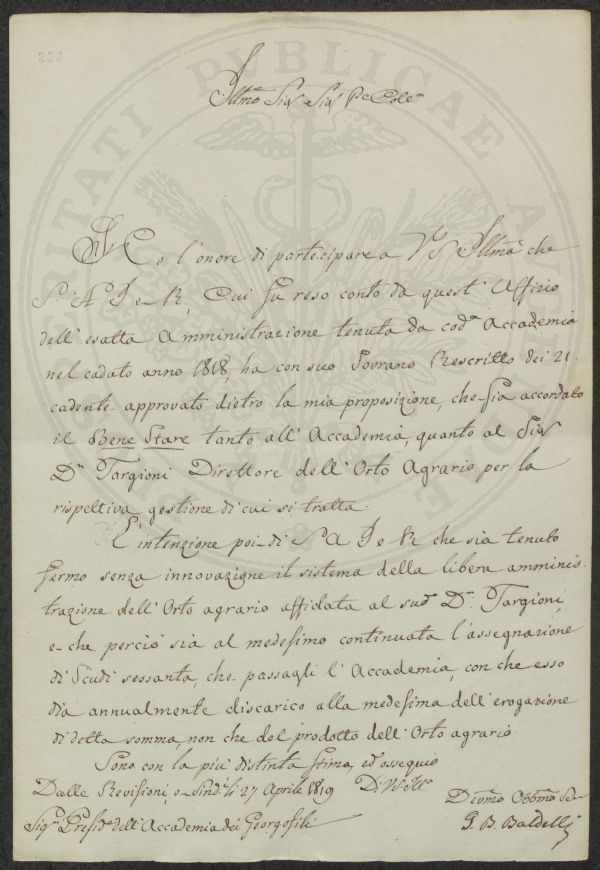 253
Illmo Sig. Sig. Pe Colo
Ho l'onore di partecipare a VS Illma che
S. A. I e R, Cui fu reso conto da quest' Affizio
dell' esatta Amministrazione tenuta da coda Accademia
nel caduto anno 1818, ha con suo Sovrano Rescritto dei 21
cadente approvato dietro la mia proposizione, che sia accordato
il Bene Stare tanto all' Accademia, quanto al Sig
Dr Targioni Direttore dell' Orto Agrario per la
rispettiva gestione di cui si tratta.
L'intenzione poi di S A I e R che sia tenuto
fermo senza innovazione il sistema della libera amminis-
trazione dell' Orto agrario affidata al sud Dr Targioni,
e che perciò sia al medesimo continuata l'assegnazione
di Scudi sessanta, che passagli l' Accademia, con che esso
dia annualmente discarico alla medesima dell' erogazione
di detta somma, non che del prodotto dell' Orto agrario.
Sono con la più distinta stima, ed ossequio
Dalle Revisioni, e Sind.i li 27 Aprile 1819 Di VS. Illa
Sigr Preside dell' Accademia dei Georgofili
Devmo Obbmo Ser
G. B. Baldelli
PUBLICAE